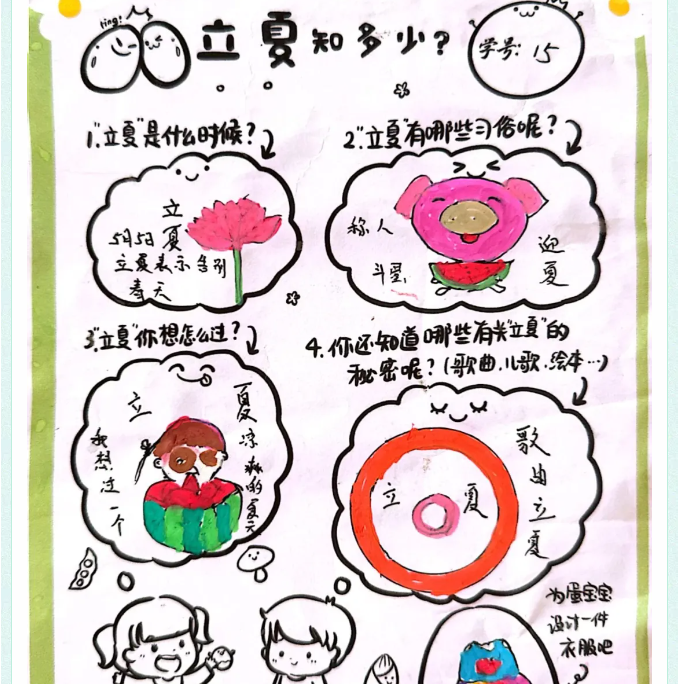 ring!
立夏知多少?
学号: 15
1."立夏"是什么时候?
立夏
5月5日
立夏表示告别
春天
2."立夏"有哪些习俗呢?
称人
斗蛋
迎夏
3."立夏"你想怎么过?
立夏
我想过一个
凉爽的夏天
4.你还知道哪些有关"立夏"的
秘密呢?(歌曲.儿歌.绘本…)
立夏
歌曲立夏
为蛋宝宝
设计一件
衣服吧